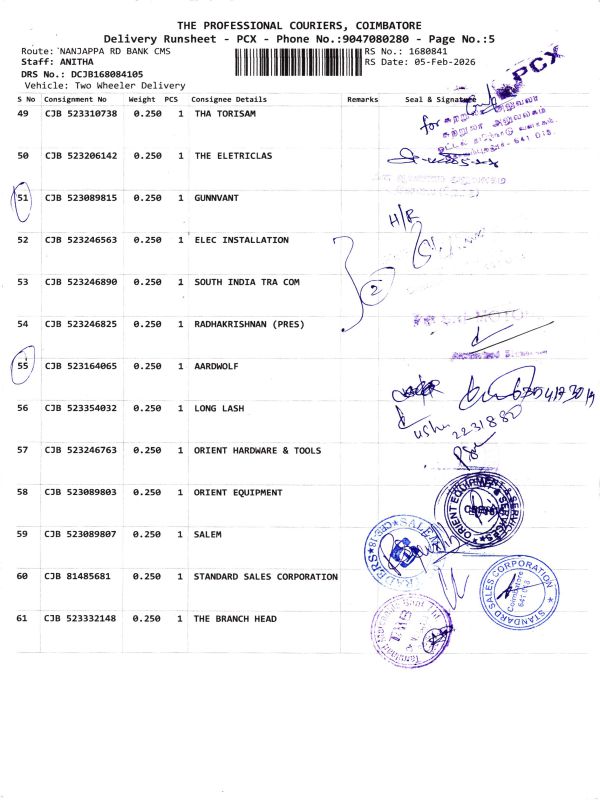 THE PROFESSIONAL COURIERS, COIMBATORE
Delivery Runsheet - PCX - Phone No.:9047080280 - Page No.:5
Route: NANJAPPA RD BANK CMS
RS No.: 1680841
Staff: ANITHA
RS Date: 05-Feb-2026
DRS No.: DCJB168084105
Vehicle: Two Wheeler Delivery
S No Consignment No Weight PCS Consignee Details Remarks Seal & Signature
PCX
49 CJB 523310738 0.250 1 THA TORISAM
for
50 CJB 523206142 0.250 1 THE ELETRICLAS
51 CJB 523089815 0.250 1 GUNNVANT
H/R
52 CJB 523246563 0.250 1 ELEC INSTALLATION
53 CJB 523246890 0.250 1 SOUTH INDIA TRA COM
2
54 CJB 523246825 0.250 1 RADHAKRISHNAN (PRES)
55 CJB 523164065 0.250 1 AARDWOLF
56 CJB 523354032 0.250 1 LONG LASH
ushu 2231880
57 CJB 523246763 0.250 1 ORIENT HARDWARE & TOOLS
58 CJB 523089803 0.250 1 ORIENT EQUIPMENT
ORIENT EQUIPMENT & SERVICES
59 CJB 523089807 0.250 1 SALEM
SALEM
60 CJB 81485681 0.250 1 STANDARD SALES CORPORATION
STANDARD SALES CORPORATION
Coimbatore
61 CJB 523332148 0.250 1 THE BRANCH HEAD